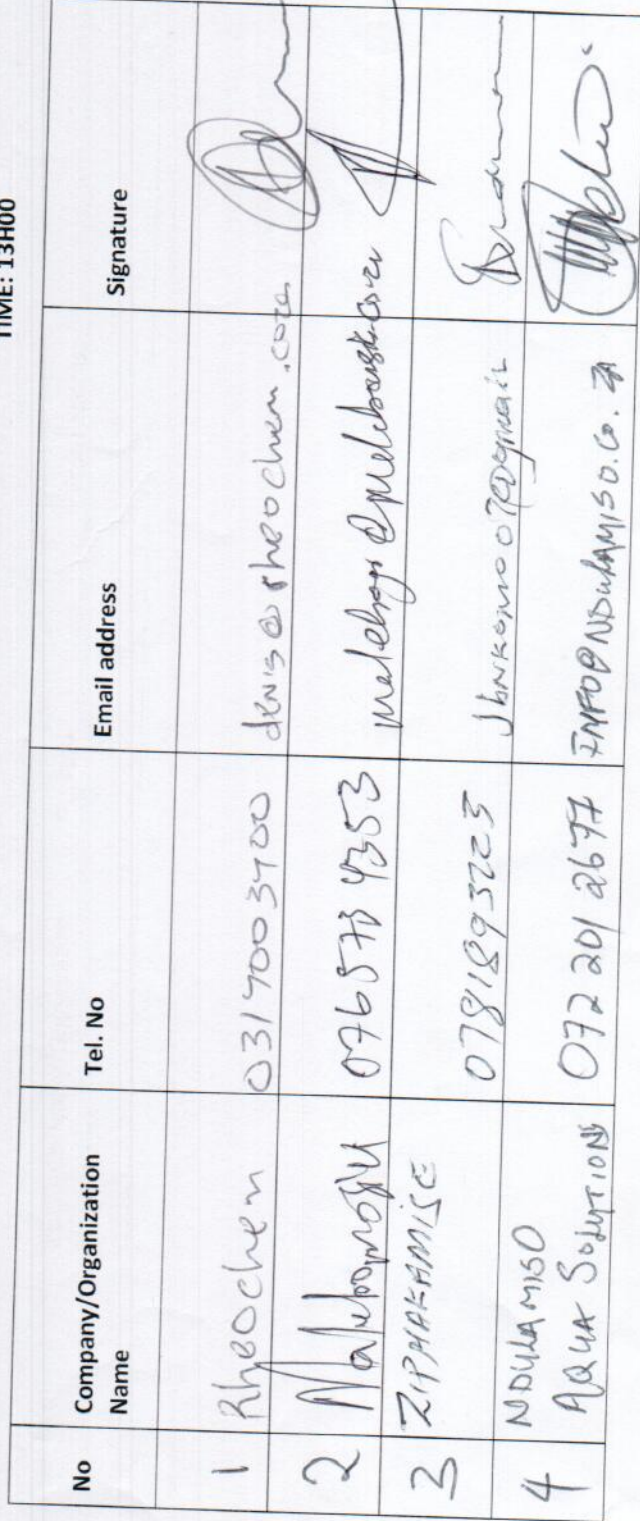 TIME: 13H00
No Company/Organization Name Tel. No Email address Signature
1 Rheochem 0317003400 denis@rheochem.coza
2 076 573 4353
3 ZIPHAKAMISE 0781893223
4 NDULAMISO AQUA SOLUTIONS 072 201 2677 INFO@NDULAMISO.Co.ZA